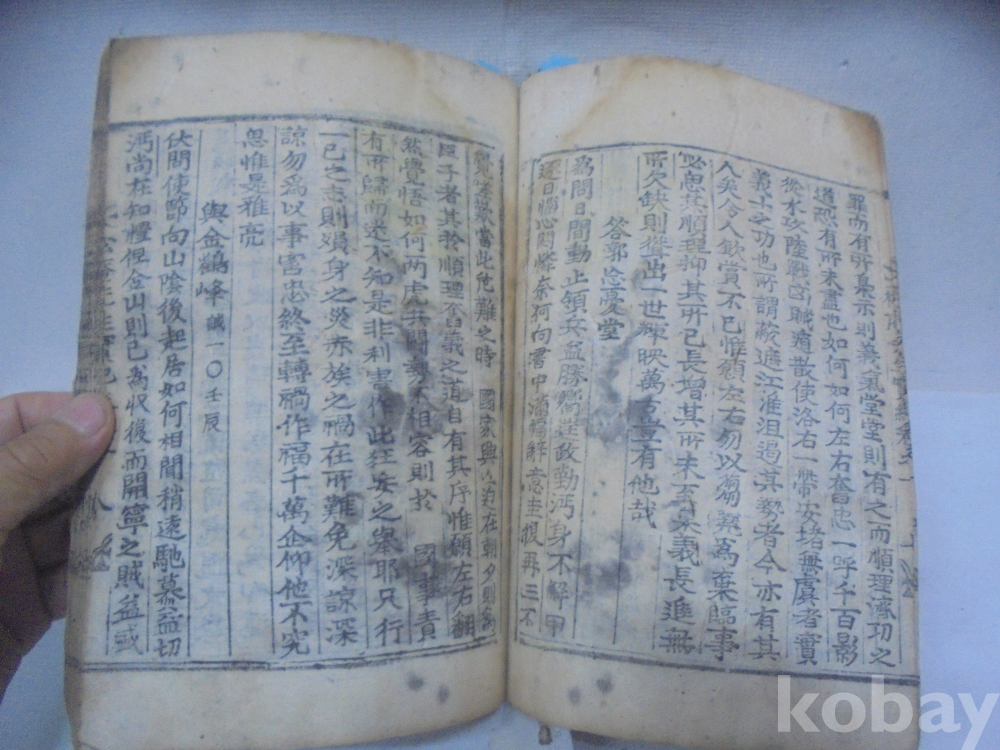 罪而有所梟示則義氣堂堂則有之而順理濟功之
道恐有所未盡也如何如何左右奮忠一呼千百影
從水攻陸戰 散使洛右一帶安堵無虞者實
義士之功也所謂蔽遮江淮沮遏其勢者今亦有其
人矣令人欽賞不已惟願左右勿以芻蕘為棄臨事
必思其順理抑其所已長增其所未至 義長進無
所欠缺則聳出一世輝映萬古豈有他哉
答郭忘憂堂
為問日間動止領兵益勝嚮 政勤溤身不解甲
逐日 心 奈何向書中 辭意 復再三不
當此危難之時 國家興 在朝夕則
者其於順理 義之道自有其序惟願左右翻
然覺悟如何兩虎共鬪勢不相容則於 國事責
有所歸而 不知是非利害作此狂妄之舉耶只行
一己之志則媒身之災赤族之禍在所難免深諒深
諒勿為以事害忠終至轉禍作福千萬企仰他不究
悤惟是雅亮
與金鶴峰 誠一〇壬辰
伏問使節向山陰後起居如何相聞稍遠馳慕益切
溤尚在知禮 金山則已為收復而開寧之賊益或
kobay